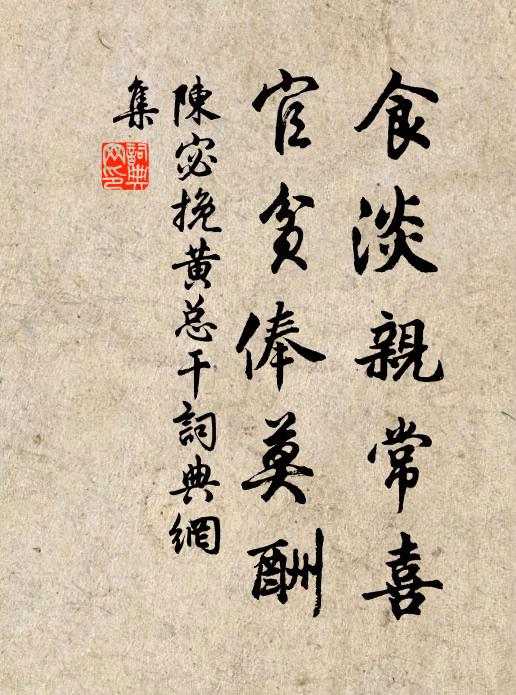 食淡親常喜
官貧俸莫酬
陳宓挽黄总干詞典網
集
詞典
网印